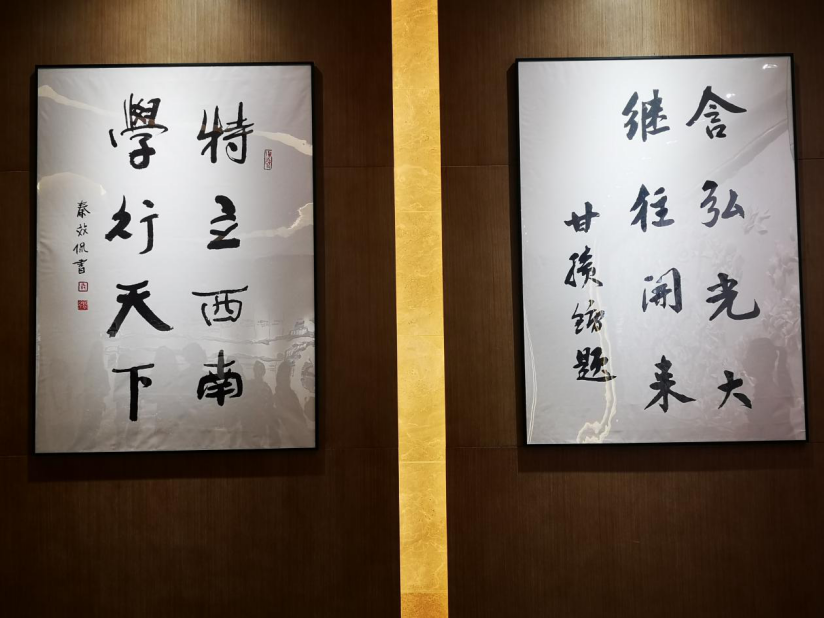 含弘光大
继往開来
甘績镛题
特立西南
學行天下
秦效侃書